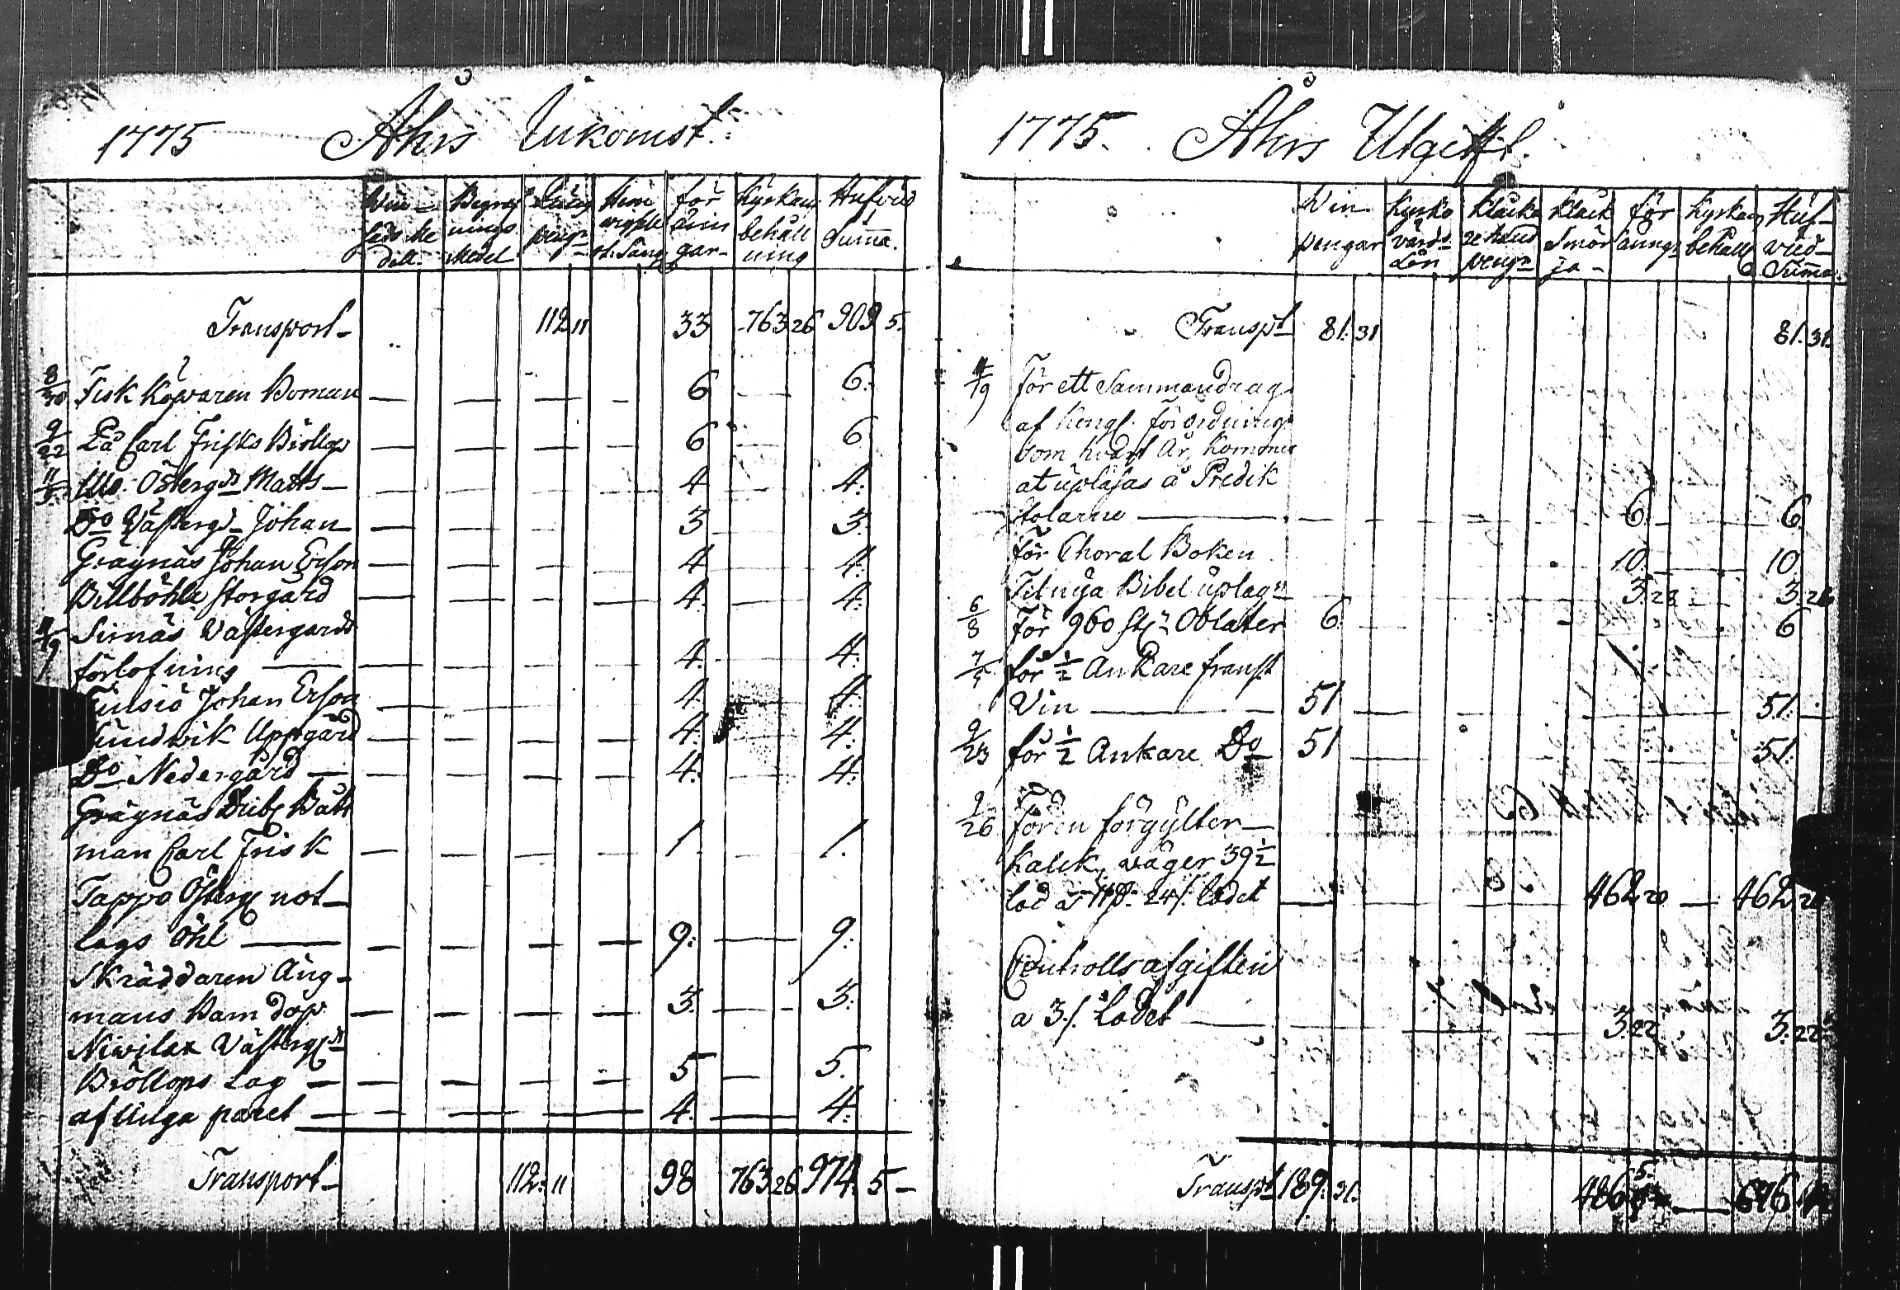 1775 Åhrs Inkomst.
Begraf
nings
Medel
för
ärin
gar
Kyrkans
behåll
ning
Hufvud
Summa.
Transport 112 11 33 763 26 909 5.
8/30 Fisk Köparen Boman — — — — 6 — 6.
9/22 På Carl Frisks Bröllop — — — — 6 — 6
Österg.d Matts — — — — — 4 4.
Do Västerg.d Johan — — — — 3 3.
Grägnäs Johan Erson — — — — 4 4.
Billböhle Storgård — — — — 4. 4.
Simäs Västergårds
förlofning — — — — — 4. 4.
Johan Erson — — — — 4. 4.
Uppgård — — — — 4. 4.
Do Nedergård — — — — — 4. 4.
Grägnäs Bått
man Carl Frisk — — — — 1. 1.
Tappo Österg not
lags Öhl — — — — — 9. — 9.
Skräddaren Äng-
mans Barndop — — — — 3. — 3.
Västerg.d
Bröllops Lag — — — — — 5 — 5.
af Unga paret — — — — — 4. — 4.
Transport 112. 11 98 763 26 974. 5 —
1775. Åhrs Utgift.
Win
pengar
Kyrko
värds
Lön
Klåcka
rehans
peng.r
Klåck
Smör
ja
för
äring.r
Kyrkans
behålln
Huf-
vud-
Summa.
Transp.t 81. 31 81. 31.
9 för ett Sammandrag
af Kongl. förordning
som hvart År, Komma
at upläsas å Predik
stolarne — 6. 6.
för Choral Boken 10. — 10.
Til nya Bibel uplag.n 3. 28 3. 28
6/8 för 960 st.r Oblater 6. 6
7 för ½ Ankare franst
Vin — 51. — — — 51. —
9/23 för ½ Ankare Do 51 — — — 51.
9/26 för en förgÿlter —
Kalk, wäger 39 ½
lod à 24/ lodet — — — — 462 20 — 462 20
Controlls afgiften
a 3/ Lodet — — — — 3. 22 3. 22
Transp.t 189. 31. 486 5 — 676